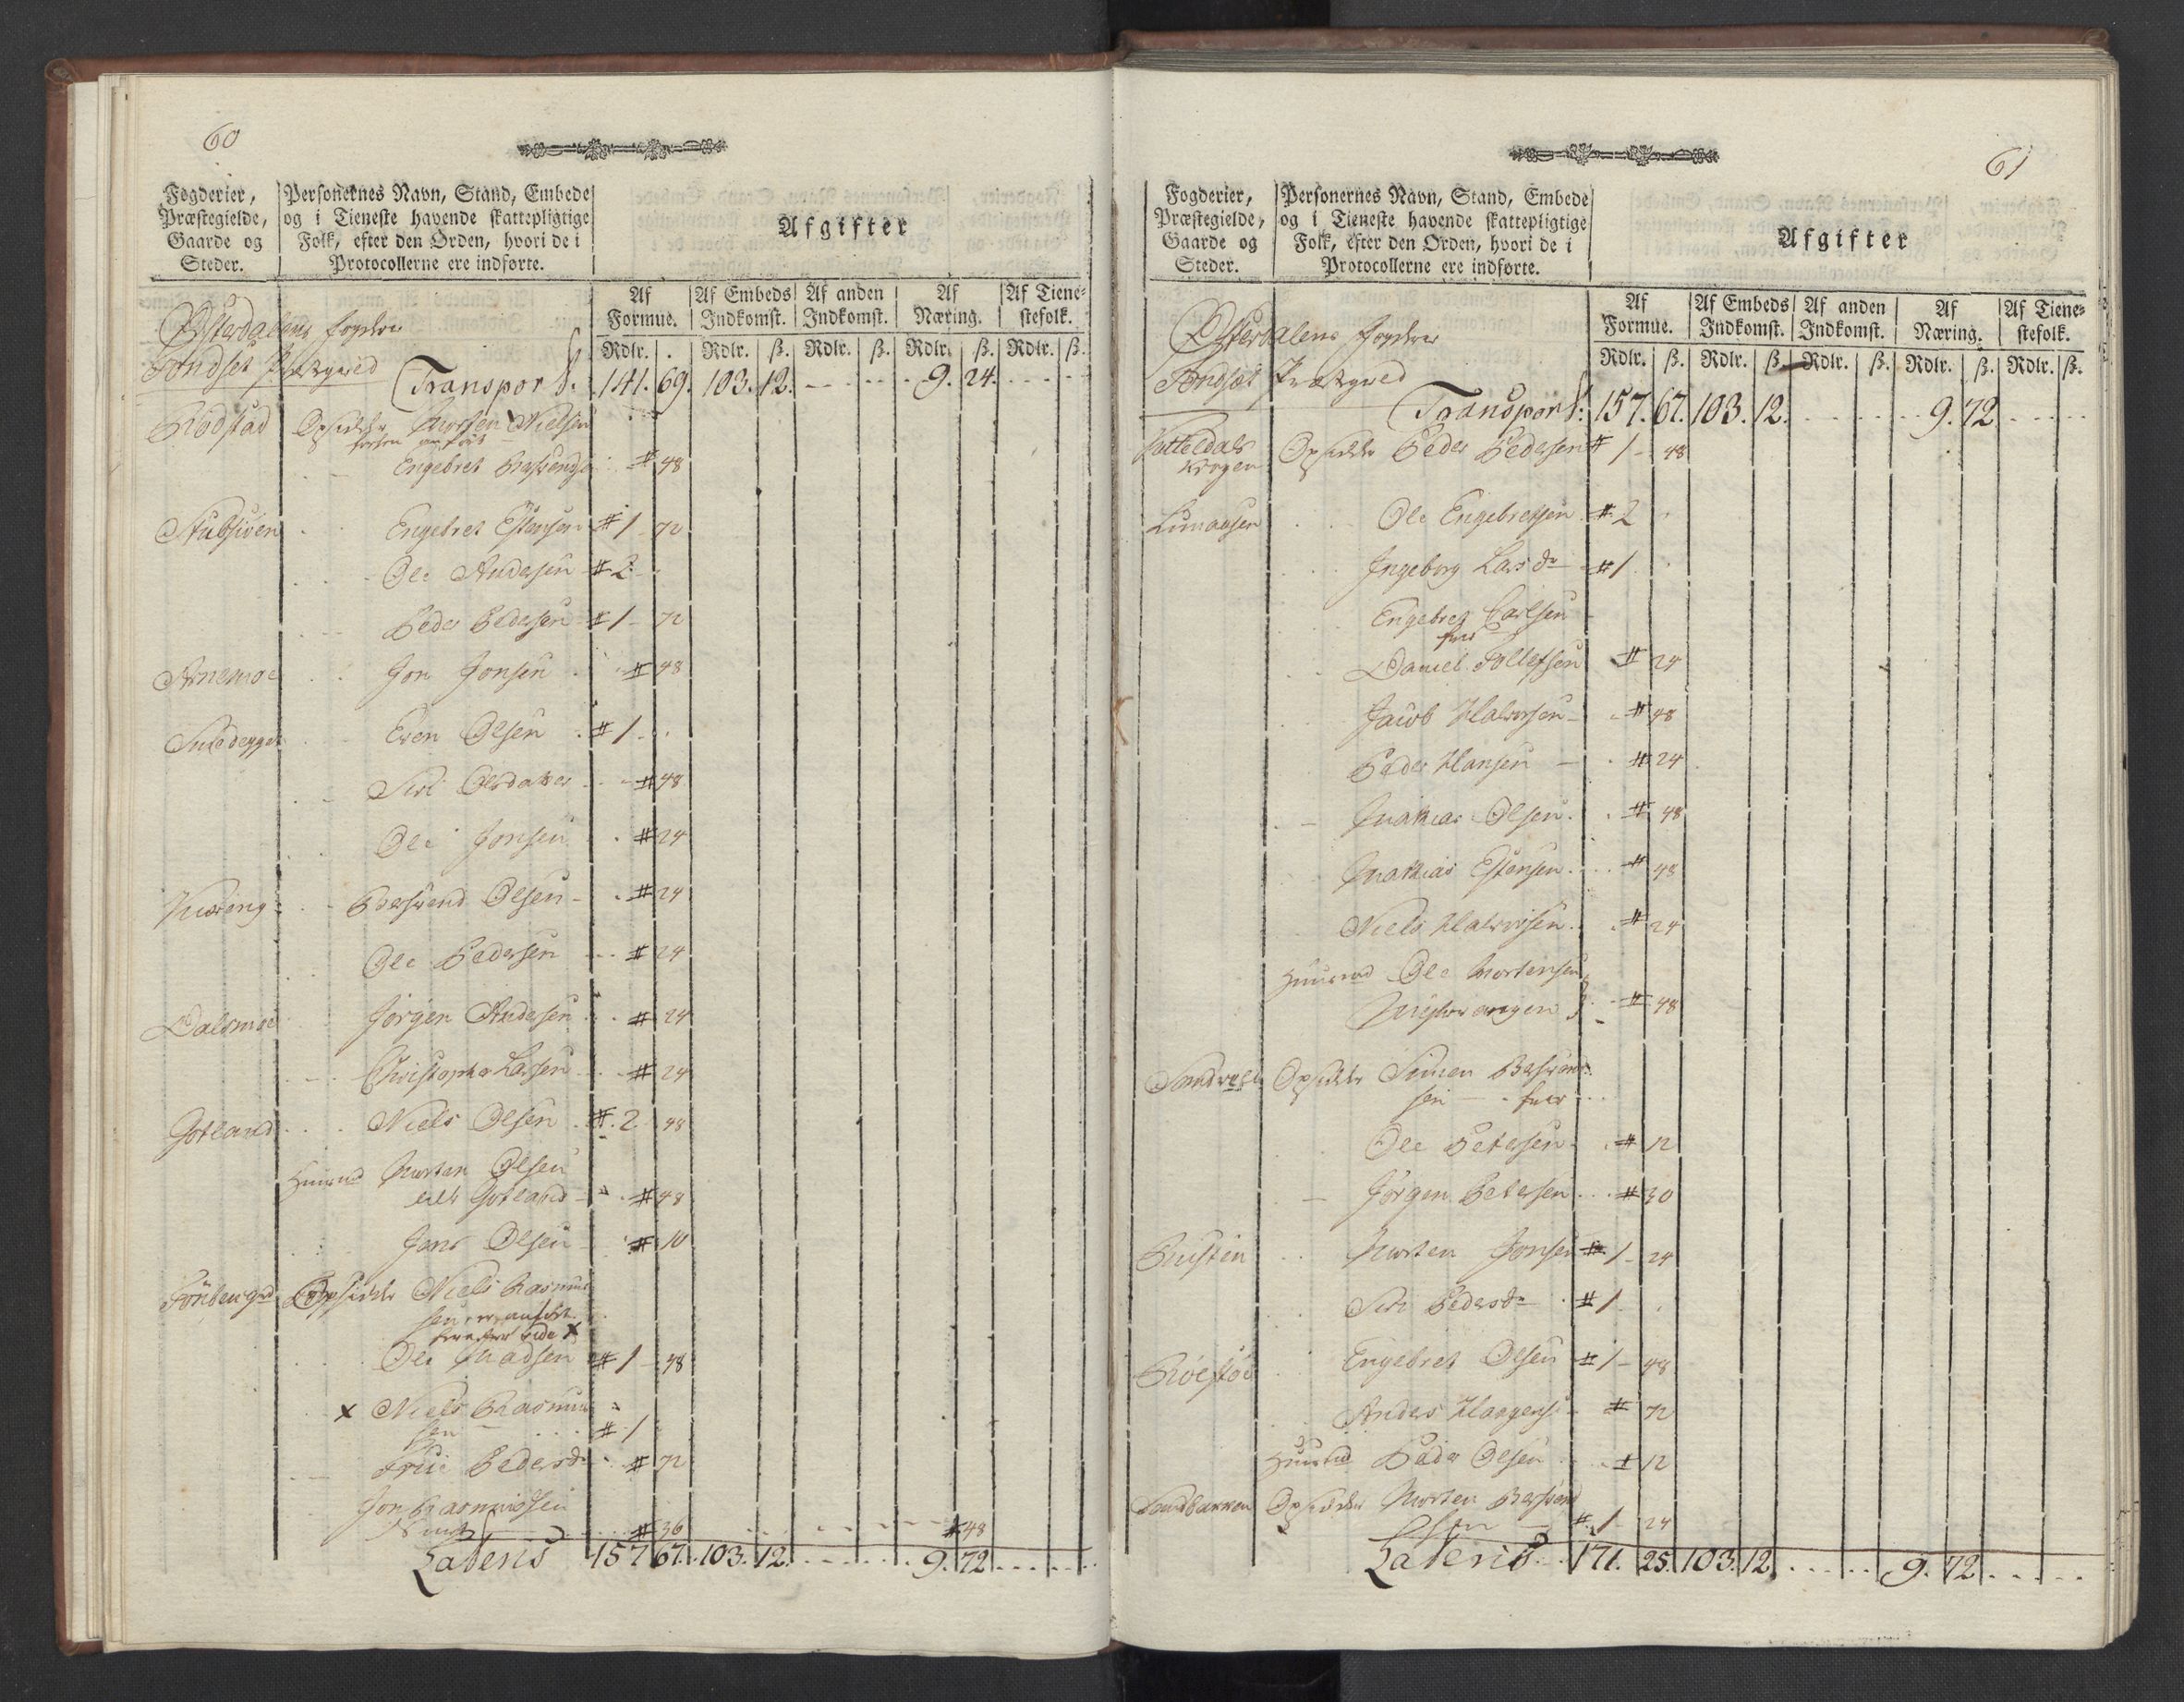 60
Fogderier, Præstegielde, Gaarde og Steder.
Personernes Navn, Stand, Embede og i Tieneste havende skattepligtige Folk, efter den Orden, hvori de i Protocollerne ere indførte.
Afgifter
Af Formue. Af Embeds Indkomst. Af anden Indkomst. Af Næring. Af Tienestefolk.
Rdlr. . Rdlr. ß. Rdlr. ß. Rdlr. ß. Rdlr. ß.
Østerdalens fogderie
Tondset
Transport. 141. 69. 103. 12. 9. 24.
Rødstad Opsidder Morten Nielsen
Engebret 48
Stubsveen Engebret Estensen 1 72
Ole Andersen 2
Peder Pedersen 1 72
Arnemoe Jon Jonsen 48
Even Olsen 1
Siri 48
Ole Jonsen 24
Olsen 24
Ole Pedersen 24
Dalsmoe Jørgen Andersen 24
Christopher Larsen 24
Gotland Niels Olsen 2 48
Morten Olsen
Gotland 48
Jens Olsen 10
Opsidder Niels Rasmus
sen er anført
vide x
Ole Madsen 1 48
x Niels Rasmus
sen 1
Pedersdr 72
Jon Rasmussen
36 48
Lateris 157 67. 103. 12. 9. 72
61
Fogderier, Præstegielde, Gaarde og Steder.
Personernes Navn, Stand, Embede og i Tieneste havende skattepligtige Folk, efter den Orden, hvori de i Protocollerne ere indførte.
Afgifter
Af Formue. Af Embeds Indkomst. Af anden Indkomst. Af Næring. Af Tienestefolk.
Rdlr. ß. Rdlr. ß. Rdlr. ß. Rdlr. ß. Rdlr. ß.
Østerdalens fogderie
Tondset
Transport. 157. 67. 103. 12. 9. 72
Opsidder Peder Pedersen 1 48
Ole Engebretsen 2
Ingeborg Larsdr 1
Engebret Carlsen
Daniel Tollefsen 24
Jacob Halvorsen 48
Peder Hansen 24
Mathias Olsen 48
Mathias Estensen 48
Niels Halvorsen 24
Ole Mortensen
48
Opsidder Simen
sen
Ole Petersen 12
Jørgen Petersen 30
Morten Jonsen 1 24
Siri Pedersdr 1
Engebret Olsen 1 48
Anders 72
Peder Olsen 12
Sandbakken Opsidder Morten
1 24
Lateris 171. 25. 103. 12. 9. 72